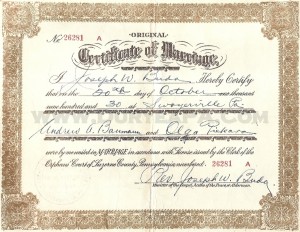 ORIGINAL
No. 26281 A
Certificate of Marriage
I Joseph W. Buda Hereby Certify
that on the 20th day of October one thousand
nine hundred and 30 at Swoyerville Pa.
Andrew A. Baumann and Olga
were by me united in MARRIAGE in accordance with license issued by the Clerk of the
Orphans Court of Luzerne County, Pennsylvania numbered 26281 A
Rev. Joseph W. Buda
Minister of the Gospel, Justice of the Peace or Alderman